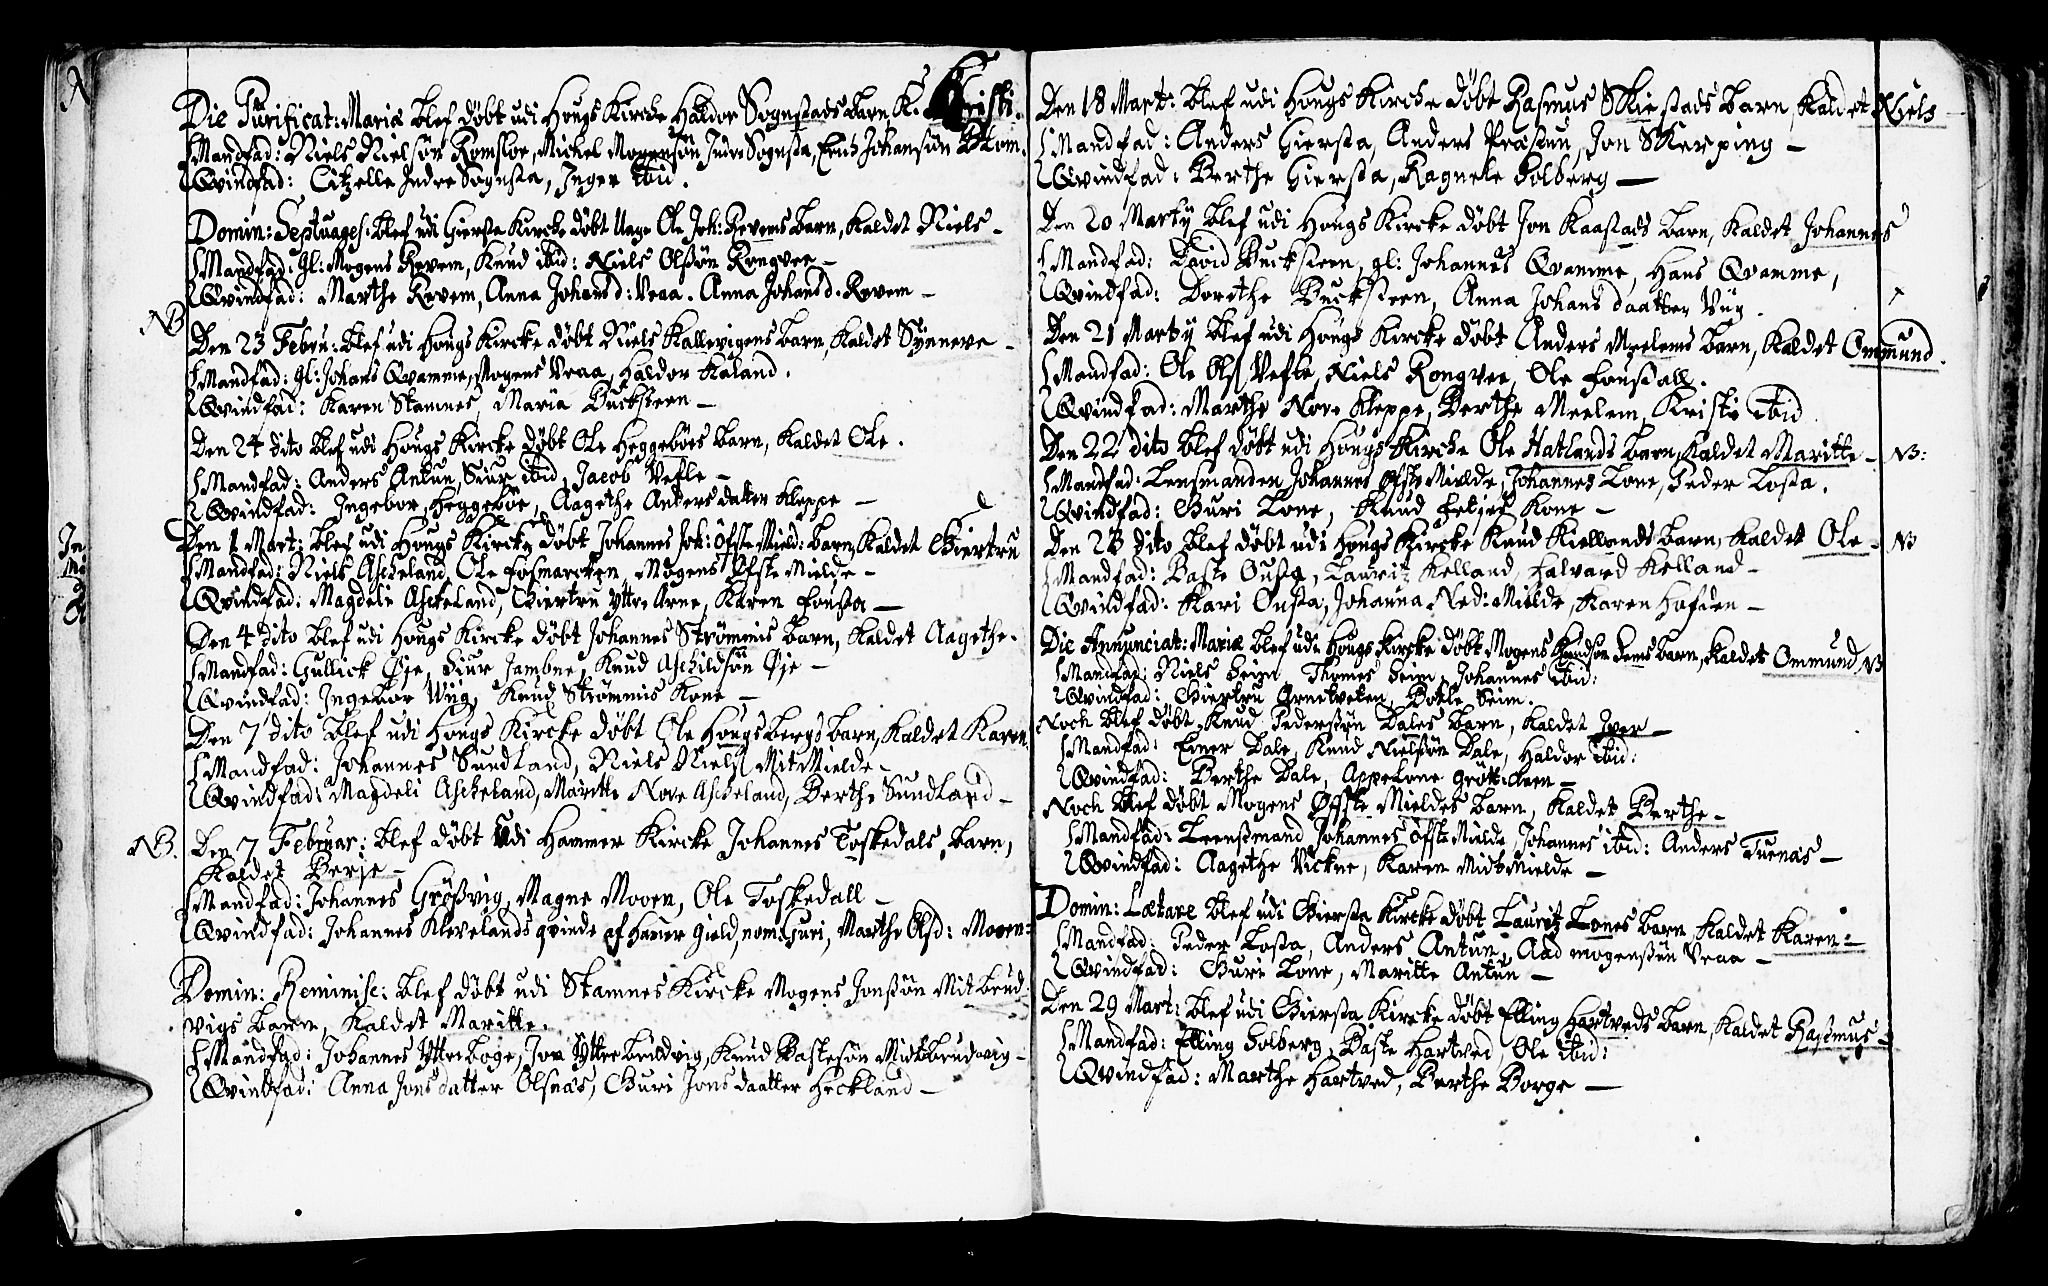 Die Purificat: Mariæ blef døbt udi Hougs Kircke Haldor Sognstads barn K. Kristi.
Mandfad: Niels Nielsøn Romsloe, Michel Mogensøn Indre Sognsta, Erich Johansøn Blom.
Qvindfad: Citzelle Indre Sognsta, Inger ibid.
Domin: Septuages: blef udi Giersta Kircke døbt Unge Ole Joh: Revems barn, kaldet Niels –
Mandfad: gl: Mogens Revem, Knud ibid: Niels Olssøn Rongvee –
Qvindfad: Marthe Revem, Anna Johansd: Veaa. Anna Johansd. Revem –
NB
Den 23 Febru: blef udi Hougs Kircke døbt Niels Kallevigens barn, kaldet Synneve –
Mandfad: gl: Johans Qvamme, Mogens Veaa, Haldor Kaland.
Qvindfad: Karen Stamnes, Maria Bucksteen –
Den 24 dito blef udi Hougs Kircke døbt Ole Heggebøes barn, kaldet Ole.
Mandfad: Anders Antun, Siur ibid, Jacob Vefle –
Qvindfad: Ingebor Heggebøe, Aagethe Anders datter Kleppe –
Den 1 Mart: blef udi Hougs Kircke døbt Johannes Joh: Øfste Mield: barn, kaldet Giertru
Mandfad: Niels Ascheland, Ole Fosmarcken, Mogens Øfste Mielde –
Qvindfad: Magdeli Ascheland, Giertru Yttre Arne, Karen Fousta –
Den 4 dito blef udi Hougs Kircke døbt Johannes Strømmis barn, kaldet Aagethe.
Mandfad: Gullick Øje, Siur Jambne, Knud Aschildsøn Øje –
Qvindfad: Ingebor Wiig, Knud Strømmis Kone –
Den 7 dito blef udi Hougs Kircke døbt Ole Hougsbergs barn, kaldet Karen
Mandfad: Johannes Sundland, Niels Niels: Mit Mielde –
Qvindfad: Magdeli Ascheland, Maritte Nore Ascheland, Berthe Sundland –
NB.
Den 7 Februar: blef døbt udi Hammer Kircke Johannes Toskedals barn,
kaldet Berje –
Mandfad: Johannes Grøssvig, Magne Mooen, Ole Toskedall –
Qvindfad: Johannes Klevelands qvinde af Haver gield, nom: Guri, Marthe Olsd: Mooen:
Domin: Reminisc: blef døbt udi Stamnes Kircke Mogens Jonssøn Mitbrud
vigs barn, kaldet Maritte.
Mandfad: Johannes Yttreboge, Jon Yttre brudvig, Knud Bastesøn Midtbrudvig –
Qvindfad: Anna Jons datter Olsnas, Guri Jons daatter Heckland –
Den 18 Mart: blef udi Hougs Kircke døbt Rasmus Skiestads barn, kaldet Niels
Mandfad: Anders Giersta, Anders Præstun, Jon Skerping –
Qvindfad: Berthe Giersta, Ragnele Solberg –
Den 20 Martij blef udi Hougs Kircke døbt Jon Kaastads barn, kaldet Johannes
Mandfad: David Bucksteen, gl: Johannes Qvamme, Hans Qvamme,
Qvindfad: Dorethe Bucksteen, Anna Johans daatter Viig.
Den 21 Martij blef udi Hougs Kircke døbt Anders Meelems barn, kaldet Ommund.
Mandfad: Ole Ols: Vefle, Niels Rongvee, Ole Fousdall.
Qvindfad: Marthe Nore Kleppe, Berthe Meelem, Kristi ibid
Den 22 dito blef døbt udi Hougs Kircke Ole Hatlands barn, kaldet Maritte – NB:
Mandfad: Lensmanden Johannes Øfste Mielde, Johannes Lone, Peder Losta.
Qvindfad: Guri Lone, Knud Fetjes Kone –
Den 23 dito blef døbt udi Hougs Kircke Knud Kiellands barn, kaldet Ole – NB
Mandfad: Baste Ousta, Lauritz Kelland, Halvard Kelland –
Qvindfad: Kari Ousta, Johanna Ned: Mielde, Karen Hofden –
Die Annunciat: Mariæ blef udi Hougs Kircke døbt Mogens Knudsøn Seims barn, kaldet Ommund, NB
Mandfad: Niels Seim, Thomes Seim, Johannes ibid:
Qvindfad: Giertru Arnetveten, Botle Seim.
Noch blef døbt Knud Pederssøn Dales barn, kaldet Iver –
Mandfad: Einer Dale, Knud Nielssøn Dale, Haldor ibid:
Qvindfad: Berthe Dale, Appelone
Noch blef døbt Mogens Øffste Mieldes barn, kaldet Berthe –
Mandfad: Leenssmand Johannes Øfste Mielde, Johannes ibid: Anders Tuenæs –
Qvindfad: Aagethe Vickne, Karen Midtmielde –
Domin: Lætare blef udi Giersta Kircke døbt Lauritz Lones barn, kaldet Karen –
Mandfad: Peder Losta, Anders Antun, Aad Mogenssøn Veaa –
Qvindfad: Guri Lone, Maritte Antun –
Den 29 Mart: blef udi Giersta Kircke døbt Elling Hartveds barn, kaldet Rasmus –
Mandfad: Elling Solberg, Baste Hartved, Ole ibid:
Qvindfad: Marthe Hartved, Berthe Borge –